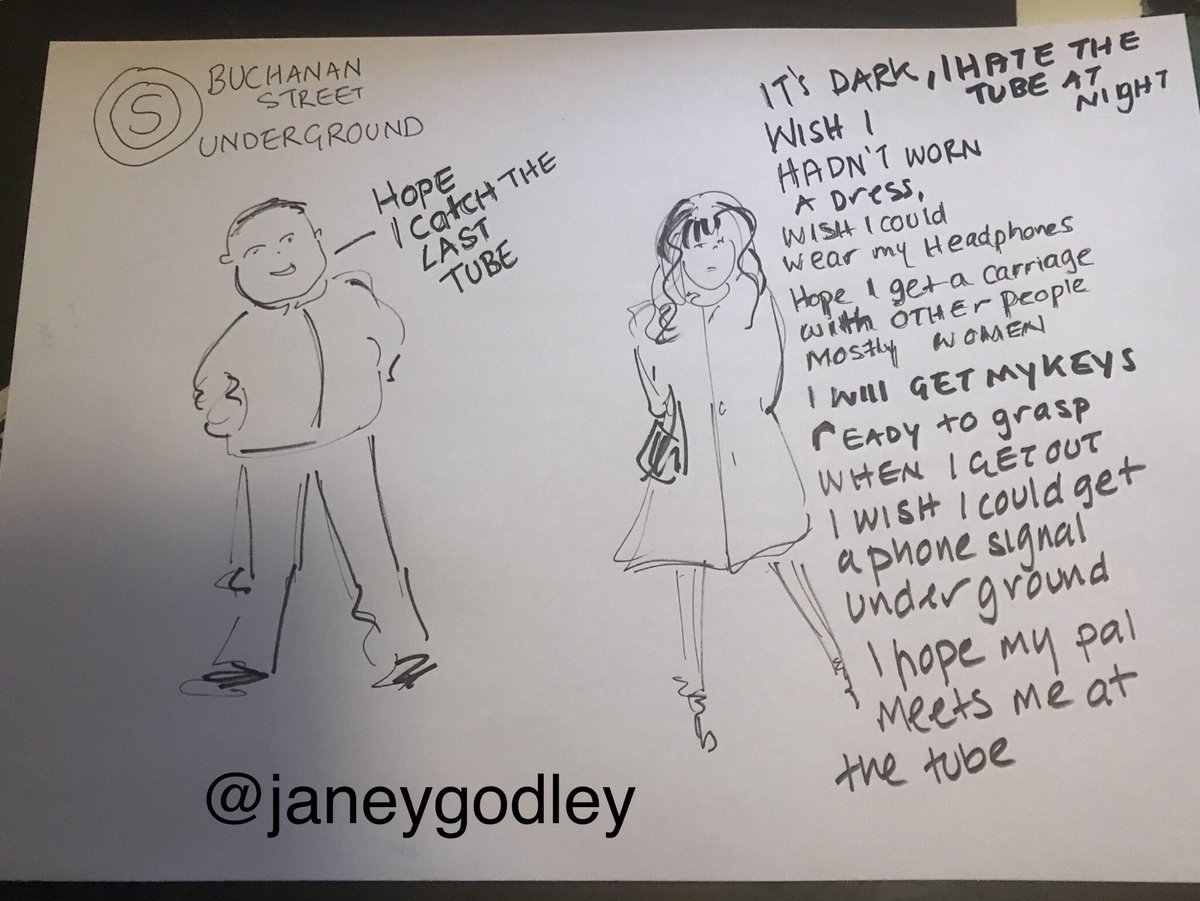 S
BUCHANAN
STREET
UNDERGROUND
HOPE
I CAtCH THE
LAST
TUBE
IT'S DARK, I HATE THE
TUBE AT
NIgHT
WISH I
HADN'T WORN
A DRess,
WISH I COULD
wear my Headphones
Hope I get a carriage
with OTHer people
MOStly WOMEN
I WIll GET MY KEYS
rEADY to grasp
WHEN I GET OUT
I WISH I could get
a phone signal
underground
I hope my pal
Meets me at
the tube
@janeygodley